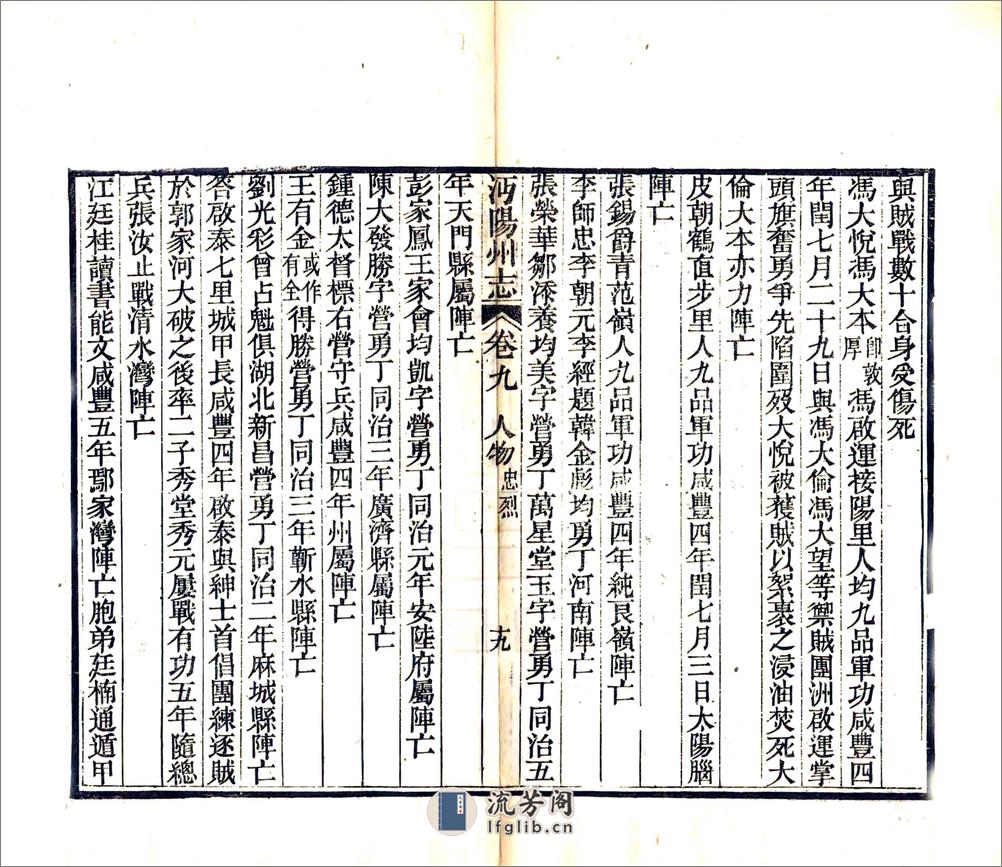 與賊戰數十合身受傷死
馮大悅馮大本即敦厚馮啟運接陽里人均九品軍功咸豐四
年閏七月二十九日與馮大倫馮大望等禦賊團洲啟運掌
頭旗奮勇爭先陷圍歿大悅被獲賊以絮裹之浸油焚死大
倫大本亦力陣亡
皮朝鶴直步里人九品軍功咸豐四年閏七月三日太陽腦
陣亡
張錫爵青范嶺人九品軍功咸豐四年純良嶺陣亡
李師忠李朝元李經題韓金彪均勇丁河南陣亡
張榮華鄒添養均美字營勇丁萬星堂玉字營勇丁同治五
沔陽州志 卷九 人物 忠烈 十九
年天門縣屬陣亡
彭家鳳王家會均凱字營勇丁同治元年安陸府屬陣亡
陳大發勝字營勇丁同治二年廣濟縣屬陣亡
鍾德太督標右營守兵咸豐四年州屬陣亡
王有金或作有全得勝營勇丁同治三年蘄水縣陣亡
劉光彩曾占魁俱湖北新昌營勇丁同治二年麻城縣陣亡
答啟泰七里城甲長咸豐四年啟泰與紳士首倡團練逐賊
於郭家河大破之後率二子秀堂秀元屢戰有功五年隨總
兵張汝止戰清水灣陣亡
江廷桂讀書能文咸豐五年鄢家灣陣亡胞弟廷楠通遁甲
流芳阁
lfglib.cn